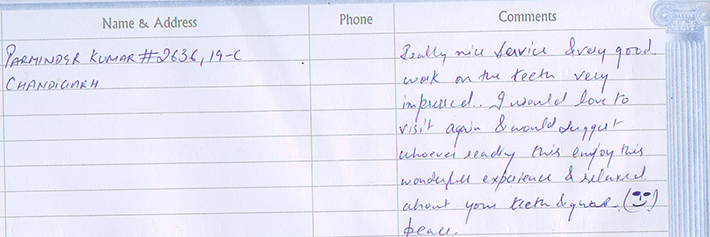 Name & Address
Phone
Comments
PARMINDER KUMAR #2636, 19-C
CHANDIGARH
Really nice service & very good
work on the teeth very
impressed. I would love to
visit again & would suggest
whoever reading this enjoy this
wonderful experience & relaxed
about your teeth &
peace.